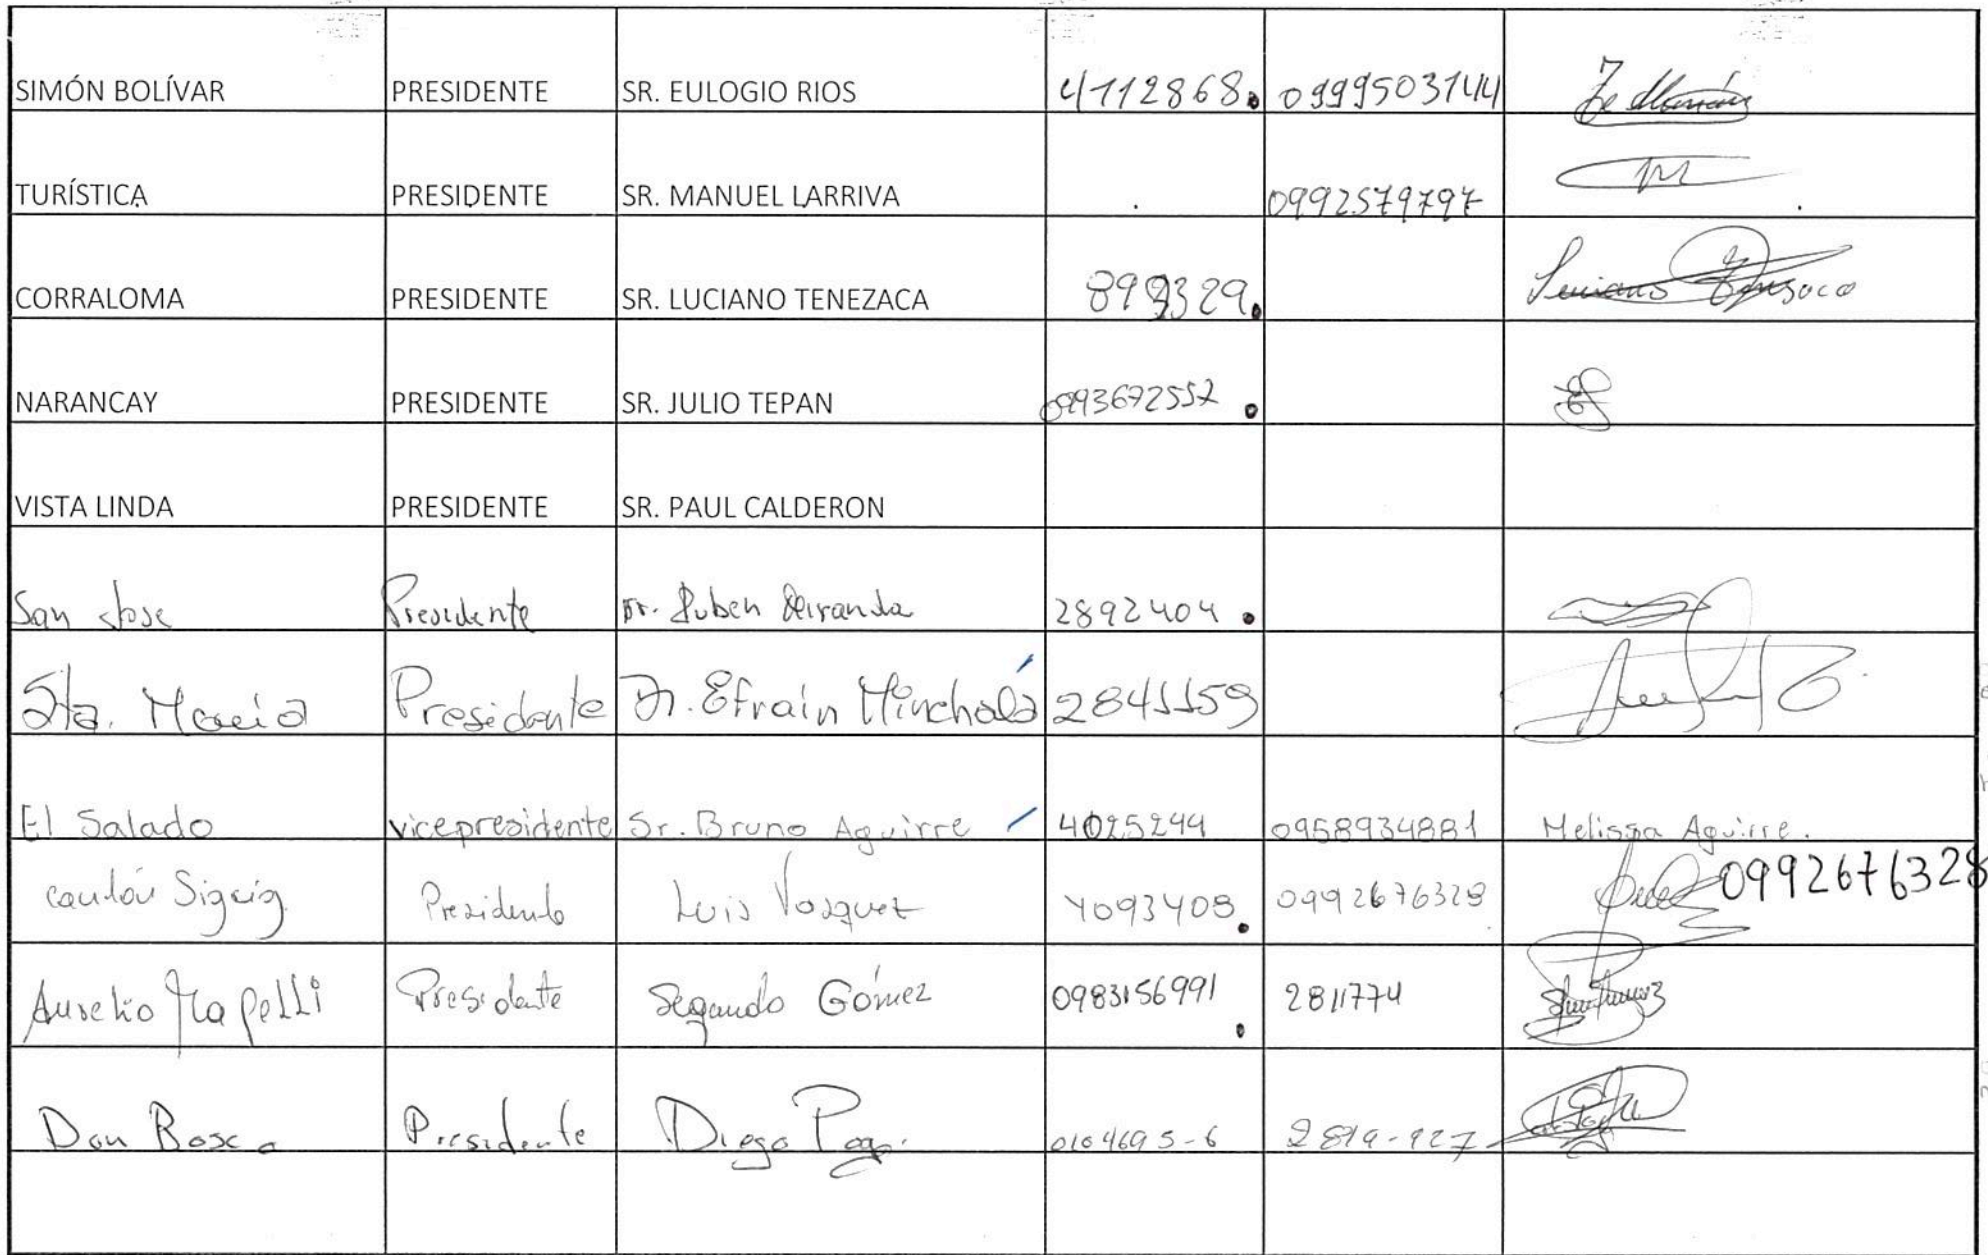 SIMÓN BOLÍVAR PRESIDENTE SR. EULOGIO RIOS 4112868. 0999503144
TURÍSTICA PRESIDENTE SR. MANUEL LARRIVA 0992579797
CORRALOMA PRESIDENTE SR. LUCIANO TENEZACA 899329. Luciano
NARANCAY PRESIDENTE SR. JULIO TEPAN 0993672552.
VISTA LINDA PRESIDENTE SR. PAUL CALDERON
San Jose Presidente Sr. Ruben Miranda 2892404.
Sta. María Presidente Dr. Efraín Minchalá 2841159
El Salado vicepresidente Sr. Bruno Aguirre 4025244 0958934881 Melissa Aguirre.
cantón Sigsig Presidente Luis Vasquez 4093408. 0992676328 0992676328
Aurelio Mapelli Presidente Segundo Gómez 0983156991. 2811774
Don Bosco Presidente Diego 2819-927